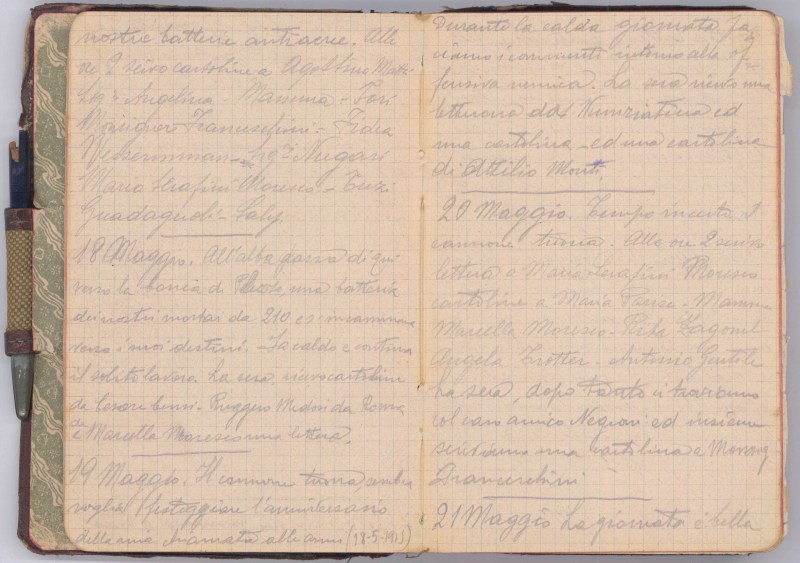 nostre batterie antiaeree. Alle
ore 2 scrivo cartoline a Agostino
Angelina - Mamma -
Maggiore Franceschini -

Mario Serafini Moresco - Tuzi
Guadagnoli - Laly
18 Maggio. All'alba passa di qui
verso la conca di una batteria
dei nostri mortai da 210 e s'incammina
verso i suoi destini. - Fa caldo e continua
il solito lavoro. La sera, ricevo cartoline
da Cesare - Ruggero da Roma
e da Marcella Moresco una lettera.
19 Maggio. Il cannone tuona, sembra
voglia festeggiare l'anniversario
della mia chiamata alle armi (18-5-1915)
Durante la calda giornata fac-
ciamo i commenti intorno alla of-
fensiva nemica. La sera ricevo una
letterona da Nunziatina ed
una cartolina - ed una cartolina
di Attilio Monti.
20 Maggio. Tempo incerto. Il
cannone tuona. Alle ore 2 scrivo
lettera a Maria Serafini Moresco
cartoline a Maria - Mamma
Marcella Moresco - Rita
Angela Trotter - Antonio Gentile
La sera, dopo ci troviamo
col caro amico Negroni ed insieme
scriviamo una cartolina a
Franceschini
21 Maggio La giornata è bella